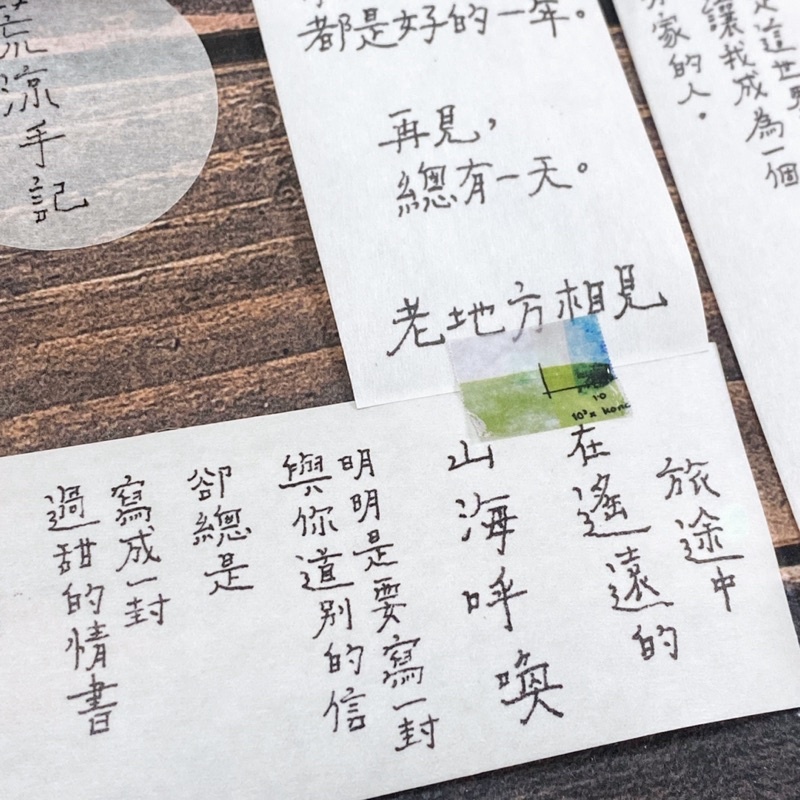 荒涼手記
都是好的一年。
再見，
總有一天。
老地方相見
讓我成為一個
家的人。
旅途中
在遙遠的
山海呼喚
明明是要寫一封
與你道別的信
卻總是
寫成一封
過甜的情書